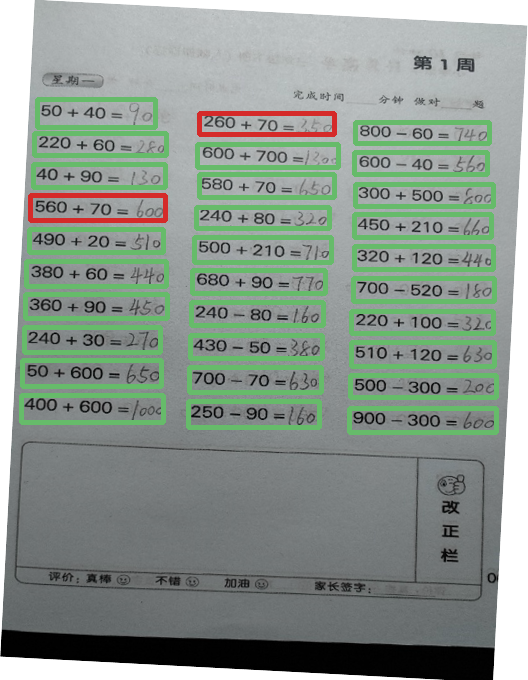 第1周
星期一
完成时间 分钟 做对 题
50+40=90
220+60=280
40+90=130
560+70=600
490+20=510
380+60=440
360+90=450
240+30=270
50+600=650
400+600=1000
260+70=350
600+700=1300
580+70=650
240+80=320
500+210=710
680+90=770
240-80=160
430-50=380
700-70=630
250-90=160
800-60=740
600-40=560
300+500=800
450+210=660
320+120=440
700-520=180
220+100=320
510+120=630
500-300=200
900-300=600
改正栏
评价:真棒 不错 加油 家长签字: